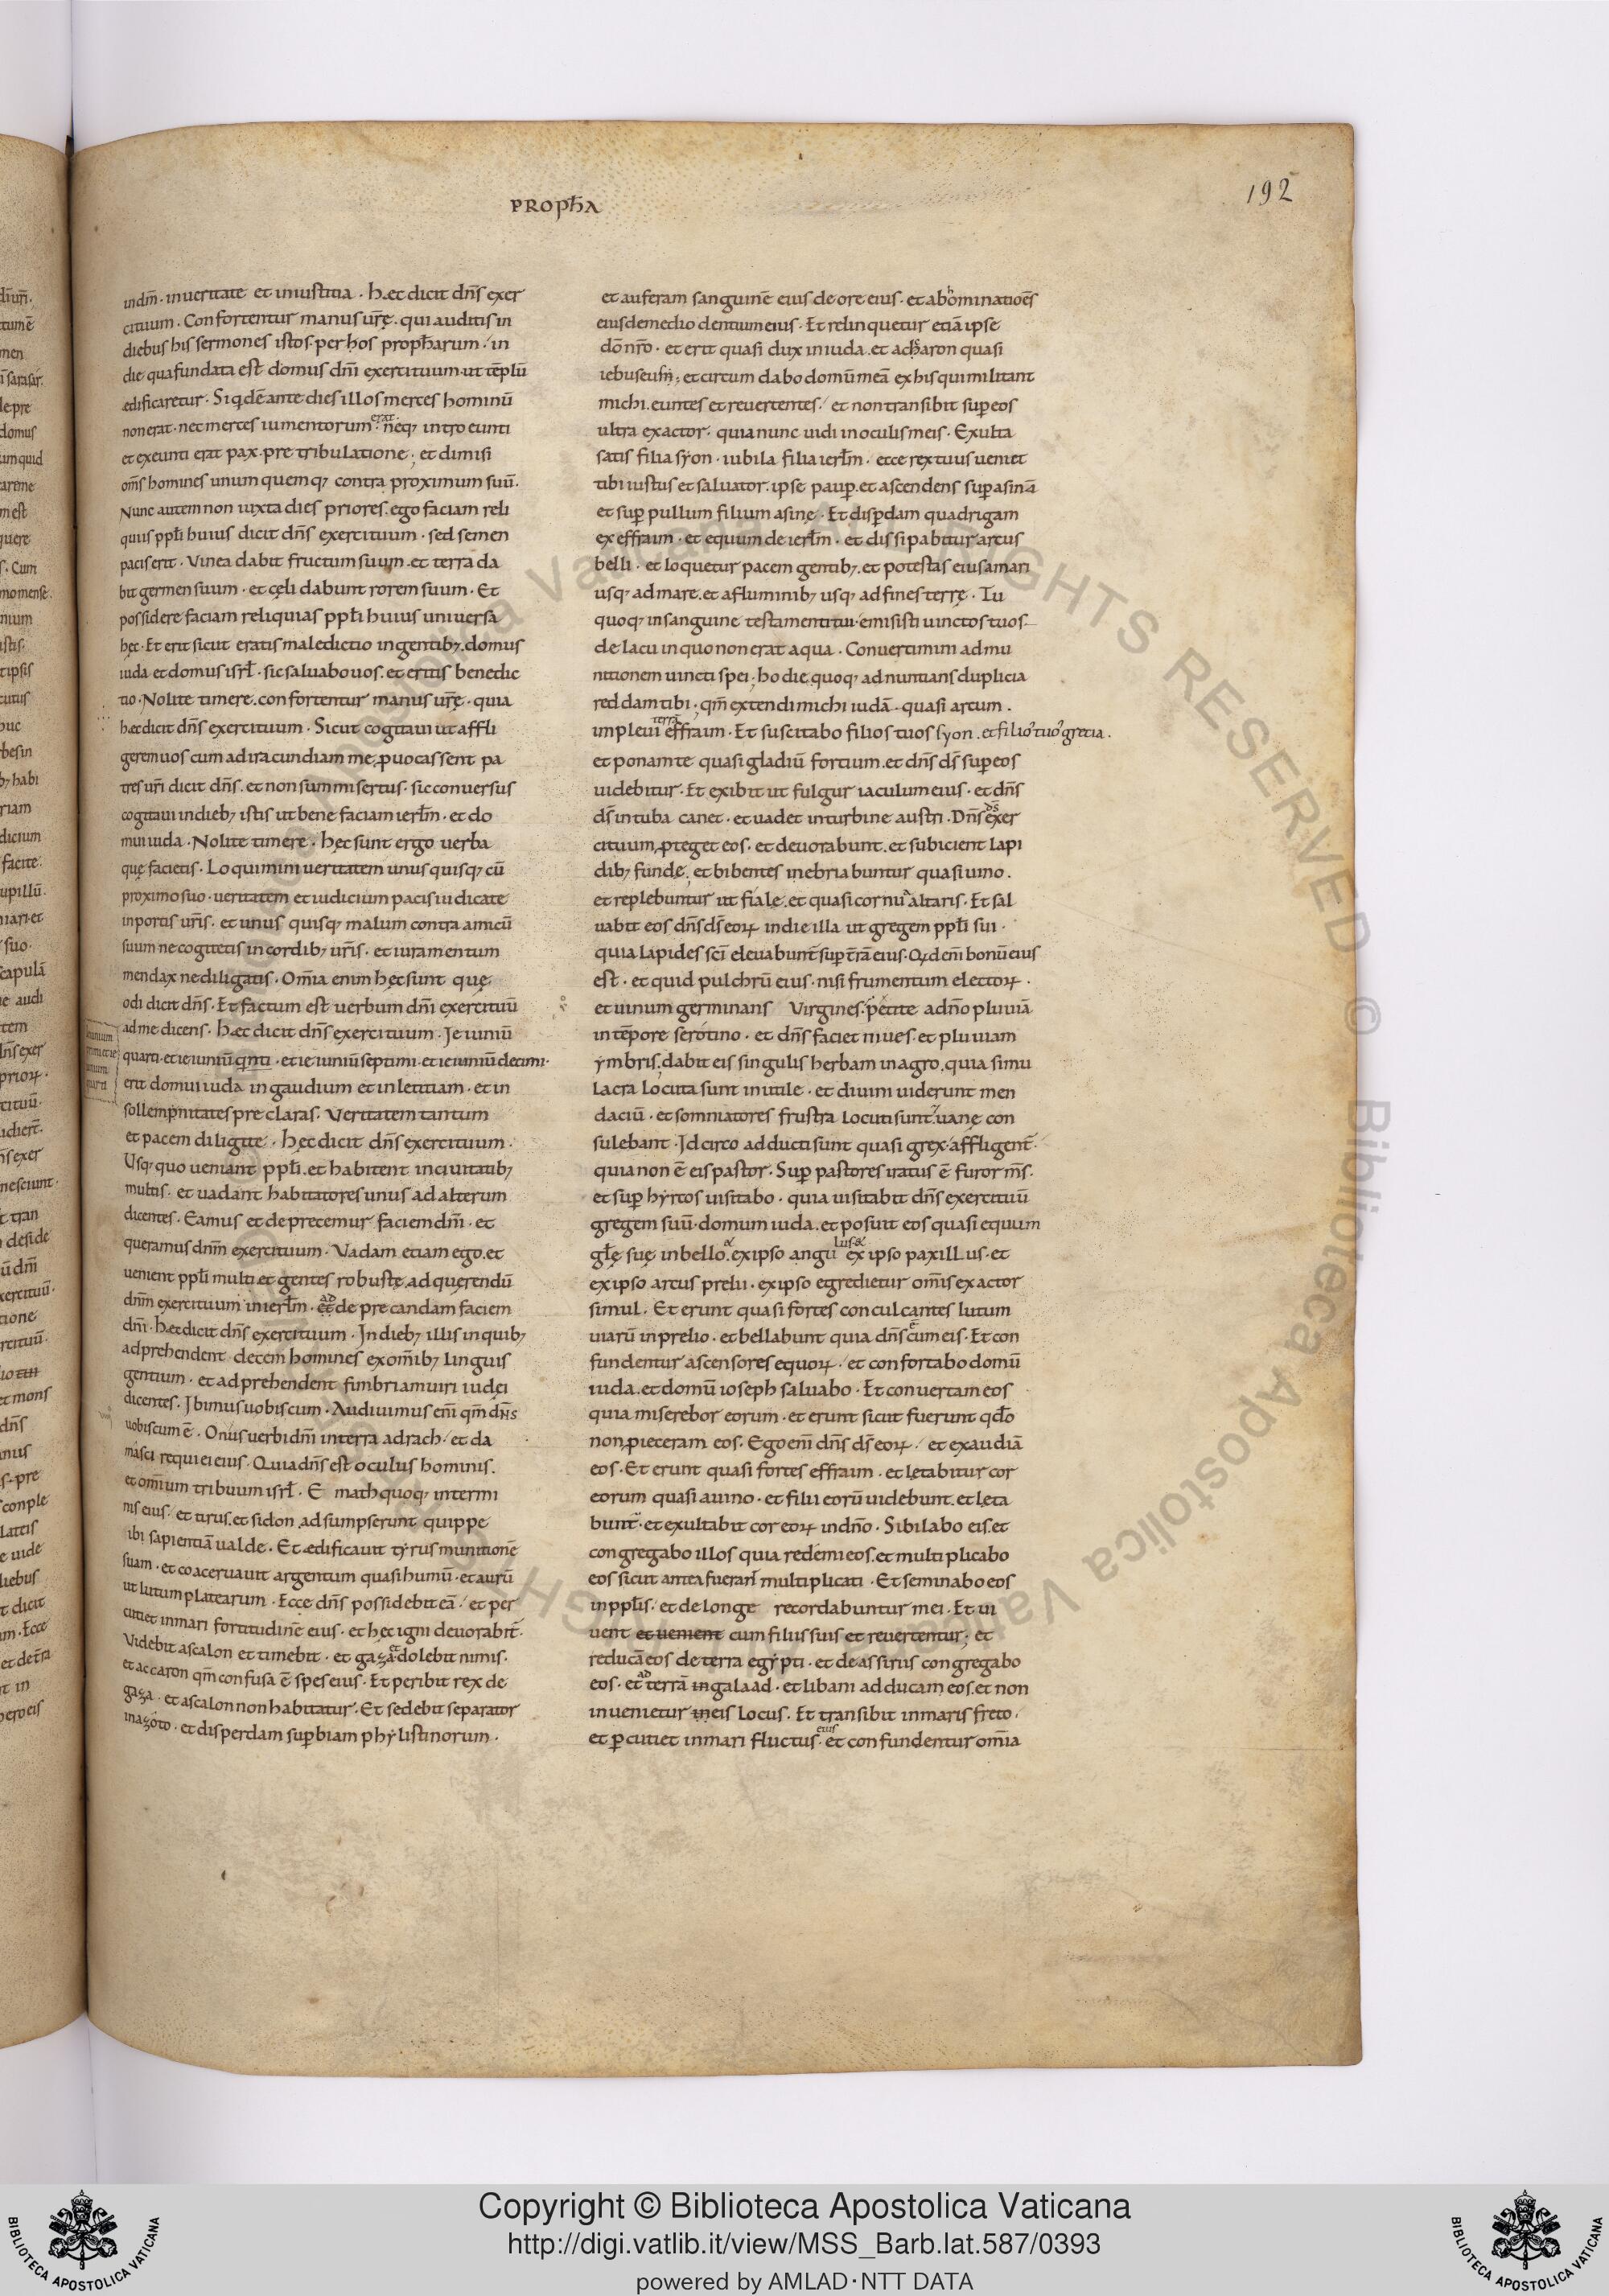 PROPħA
192
indm̄ · inueritate et iniustitia · Hæc dicit dn̄s exer
cituum · Confortentur manus ur̄ę · qui auditis in
diebus his sermones istos · per hos propħarum · in
die qua fundata est domus dn̄i exercituum · ut tēplū
ædificaretur · Siqdē ante dies illos merces hominū
non erat · nec merces iumentorum erat · neq; intro eunti
et exeunti erat pax · pre tribulatione ; et dimisi
om̄s homines unum quemq; contra proximum suū ·
Nunc autem non iuxta dies priores · ego faciam reli
quiis ppl̄i huius dicit dn̄s exercituum · sed semen
pacis erit · Vinea dabit fructum suum · et terra da
bit germen suum · et cęli dabunt rorem suum · Et
possidere faciam reliquias ppl̄i huius uniuersa
hęc · Et erit sicut eratis maledictio in gentib; · domus
iuda et domus isrł · sic saluabo uos · et eritis benedic
tio · Nolite timere · confortentur manus ur̄ę · quia
hæc dicit dn̄s exercituum · Sicut cogitaui ut affli
gerem uos cum ad iracundiam me ꝓuocassent pa
tres ur̄i dicit dn̄s · et non sum misertus · sic conuersus
cogitaui in dieb; istis ut bene faciam ierlm̄ · et do
mui iuda · Nolite timere · Hęc sunt ergo uerba
quę facietis · Loquimini ueritatem unus quisq; cū
proximo suo · ueritatem et iudicium pacis iudicate
in portis ur̄is · et unus quisq; malum contra amicū
suum ne cogitetis in cordib; ur̄is · et iuramentum
mendax ne diligatis · Om̄ia enim hęc sunt quę
odi dicit dn̄s · Et factum est uerbum dn̄i exercituū
ad me dicens · Hæc dicit dn̄s exercituum · Ieiuniū
quarti · et ieiuniū qinti · et ieiuniū septimi · et ieiuniū decimi ·
erit domui iuda in gaudium et in letitiam · et in
sollempnitates preclaras · Veritatem tantum
et pacem diligite · Hęc dicit dn̄s exercituum ·
Usq; quo ueniant ppl̄i · et habitent in ciuitatib;
multis · et uadant habitatores unus ad alterum
dicentes · Eamus et deprecemur faciem dn̄i · et
queramus dnm̄ exercituum · Vadam etiam ego · et
uenient ppl̄i multi et gentes robustę · ad querendū
dnm̄ exercituum in ierlm̄ · et ad deprecandam faciem
dn̄i · Hæc dicit dn̄s exercituum · In dieb; illis in quib;
adprehendent decem homines ex om̄ib; linguis
gentium · et adprehendent fimbriam uiri iudęi
dicentes · Ibimus uobiscum · Audiuimus en̄i qm̄ dn̄s
uobiscum ē · Onus uerbi dn̄i in terra adrach · et da
masci requiei eius · Quia dn̄s est oculus hominis ·
et omium tribuum isrł · E math quoq; in termi
nis eius · et tirus · et sidon adsumpserunt quippe
ibi sapientiā ualde · Et ædificauit tyrus munitionē
suam · et coaceruauit argentum quasi humū · et aurū
ut lutum platearum · Ecce dn̄s possidebit eā · et per
cutiet in mari fortitudinē eius · et hęc igni deuorabit̄ ·
Videbit ascalon et timebit · et gaza et dolebit nimis ·
et accaron qm̄ confusa ē spes eius · Et peribit rex de
gaza · et ascalon non habitatur · Et sedebit separator
in azoto · et disperdam supbiam phylistinorum ·
et auferam sanguinē eius de ore eius · et abhominatioēs
eius de medio dentium eius · Et relinquetur etiā ipse
dō nr̄o · et erit quasi dux in iuda · et acharon quasi
iebuseus ; et circum dabo domū meā ex his qui militant
michi · euntes et reuertentes · et non transibit sup eos
ultra exactor · quia nunc uidi in oculis meis · Exulta
satis filia syon · iubila filia ierlm̄ · ecce rex tuus ueniet
tibi iustus et saluator · ipse paup · et ascendens sup asinā
et sup pullum filium asinę · Et dispdam quadrigam
ex effraim · et equum de ierlm̄ · et dissipabitur arcus
belli · et loquetur pacem gentib; · et potestas eius a mari
usq; ad mare · et a fluminib; usq; ad fines terrę · Tu
quoq; in sanguine testamenti tui · emisisti uinctos tuos
de lacu in quo non erat aqua · Conuertimini ad mu
nitionem uincti spei ; hodie quoq; adnuntians duplicia
reddam tibi · qm̄ extendi michi iudā · quasi arcum ·
impleui terrā effraim · Et suscitabo filios tuos syon · et filio⁹ tuo⁹ grecia ·
et ponam te quasi gladiū fortium · et dn̄s ds̄ sup eos
uidebitur · Et exibit ut fulgur iaculum eius · et dn̄s
ds̄ in tuba canet · et uadet in turbine austri · Dn̄s ds̄ exer
cituum ꝓteget eos · et deuorabunt · et subicient lapi
dib; fundę · et bibentes inebriabuntur quasi uino ·
et replebuntur ut fialę · et quasi cornua altaris · Et sal
uabit eos dn̄s ds̄ eoꝝ in die illa ut gregem ppl̄i sui ·
quia lapides sc̄i eleuabunt̄ sup tr̄ā eius · Qd en̄i bonū eius
est · et quid pulchrū eius · nisi frumentum electoꝝ ·
et uinum germinans Virgines · petite a dn̄o pluuiā
in tēpore serotino · et dn̄s faciet niues · et pluuiam
ymbris · dabit eis singulis herbam in agro · quia simu
lacra locuta sunt inutile · et diuini uiderunt men
daciū · et somniatores frustra locuti sunt · uane con
sulebant · Idcirco adducti sunt quasi grex · affligent̄ ·
quia non ē eis pastor · Sup pastores iratus ē furor m̄s ·
et sup hyrcos uisitabo · quia uisitabit dn̄s exercituū
gregem suū · domum iuda · et posuit eos quasi equum
głę suę in bello · ex ipso angulus & ex ipso paxillus · et
ex ipso arcus prelii · ex ipso egredietur om̄is exactor
simul · Et erunt quasi fortes conculcantes lutum
uiarū in prelio · et bellabunt quia dn̄s cum eis ē · Et con
fundentur ascensores equoꝝ · et confortabo domū
iuda · et domū ioseph saluabo · Et conuertam eos
quia miserebor eorum · et erunt sicut fuerunt qd̄o
non ꝓieceram eos · Ego en̄i dn̄s ds̄ eoꝝ · et exaudiā
eos · Et erunt quasi fortes effraim · et lętabitur cor
eorum quasi a uino · et filii eorū uidebunt · et lęta
bunt̄ · et exultabit cor eoꝝ in dn̄o · Sibilabo eis · et
congregabo illos quia redemi eos · et multiplicabo
eos sicut antea fuerant multiplicati · Et seminabo eos
in ppl̄is · et de longe recordabuntur mei · Et ui
uent et uenient cum filiis suis et reuertentur ; et
reducā eos de terra egypti · et de assiriis congregabo
eos · et ad terrā in galaad · et libani adducam eos · et non
inuenietur in eis locus · Et transibit in maris freto ·
et pcutiet in mari fluctus eius · et confundentur om̄ia
Copyright © Biblioteca Apostolica Vaticana
http://digi.vatlib.it/view/MSS_Barb.lat.587/0393
powered by AMLAD·NTT DATA